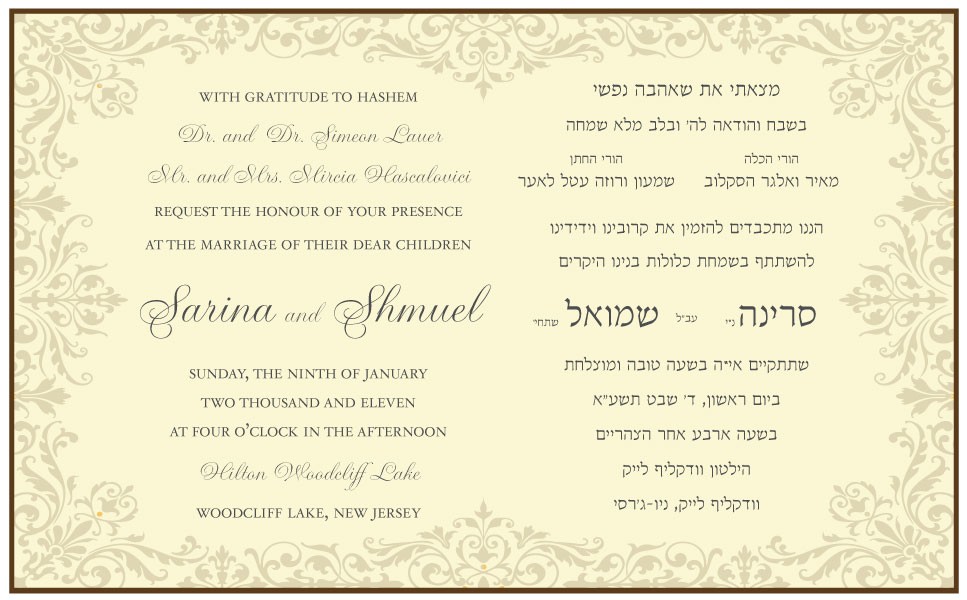 WITH GRATITUDE TO HASHEM
Dr. and Dr. Simeon Lauer
Mr. and Mrs. Mircia Hascalovici
REQUEST THE HONOUR OF YOUR PRESENCE
AT THE MARRIAGE OF THEIR DEAR CHILDREN
Sarina and Shmuel
SUNDAY, THE NINTH OF JANUARY
TWO THOUSAND AND ELEVEN
AT FOUR O’CLOCK IN THE AFTERNOON
Hilton Woodcliff Lake
WOODCLIFF LAKE, NEW JERSEY
מצאתי את שאהבה נפשי
בשבח והודאה לה' ובלב מלא שמחה
הורי הכלה הורי החתן
מאיר ואלגר הסקלוב שמעון ורוזה עטל לאער
הננו מתכבדים להזמין את קרובינו וידידינו
להשתתף בשמחת כלולות בנינו היקרים
סרינה נ"י עב"ל שמואל שתחי'
שתתקיים אי"ה בשעה טובה ומוצלחת
ביום ראשון, ד' שבט תשע"א
בשעה ארבע אחר הצהריים
הילטון וודקליף לייק
וודקליף לייק, ניו-ג'רסי